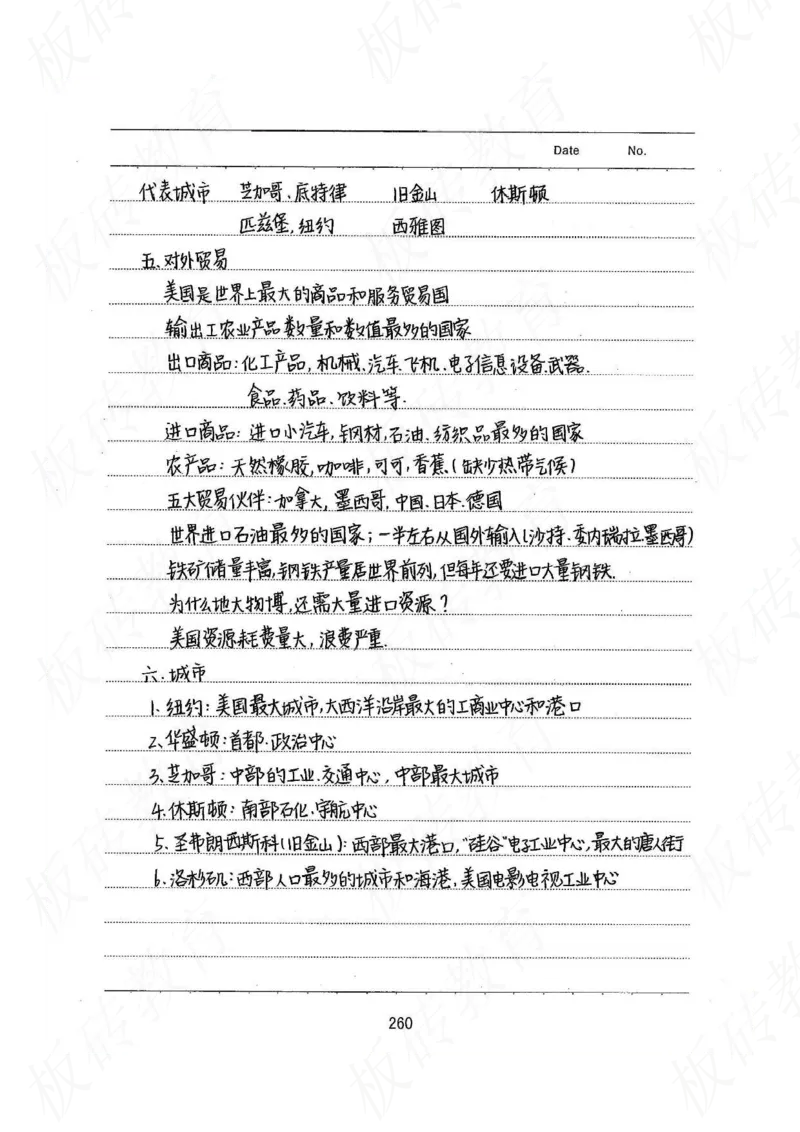 Date No.
代表城市 芝加哥、底特律 旧金山 休斯顿
匹兹堡,纽约 西雅图
五、对外贸易
美国是世界上最大的商品和服务贸易国
输出工农业产品数量和数值最多的国家
出口商品:化工产品,机械、汽车、飞机、电子信息设备、武器、
食品、药品、饮料等.
进口商品:进口小汽车,钢材,石油、纺织品最多的国家
农产品:天然橡胶,咖啡,可可,香蕉(缺少热带气候)
五大贸易伙伴:加拿大,墨西哥,中国、日本、德国
世界进口石油最多的国家;一半左右从国外输入(沙特、委内瑞拉墨西哥)
铁矿储量丰富,钢铁产量居世界前列,但每年还要进口大量钢铁.
为什么地大物博,还需大量进口资源?
美国资源耗费量大,浪费严重.
六、城市
1.纽约:美国最大城市,大西洋沿岸最大的工商业中心和港口
2、华盛顿:首都、政治中心
3、芝加哥:中部的工业、交通中心,中部最大城市
4.休斯顿:南部石化、宇航中心
5、圣弗朗西斯科(旧金山):西部最大港口,"硅谷"电子工业中心,最大的唐人街
6、洛杉矶:西部人口最多的城市和海港,美国电影电视工业中心
260
板砖教育